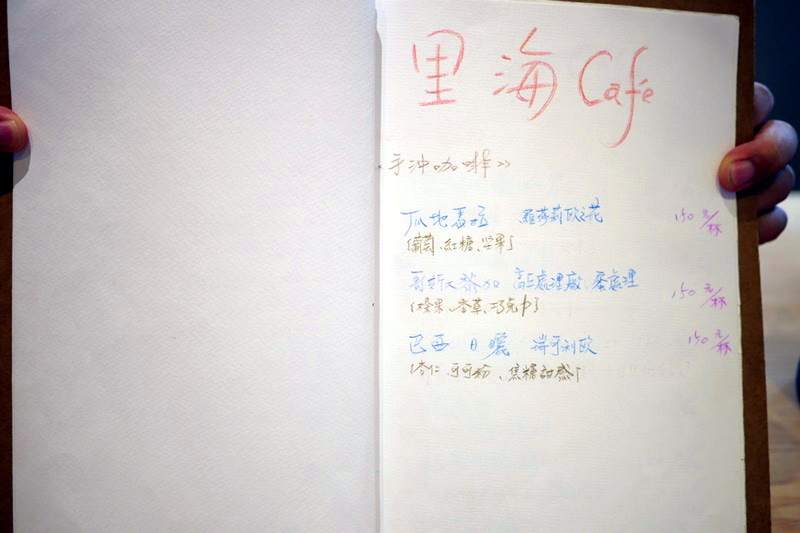 里海Café
手沖咖啡
瓜地馬拉 羅莎莉歐之花 150元/杯
葡萄、紅糖、堅果
哥斯大黎加 高正處理廠、蜜處理 150元/杯
堅果、香草、巧克力
巴西 日曬 瑞可利歐 150元/杯
杏仁 可可粉、焦糖甜感